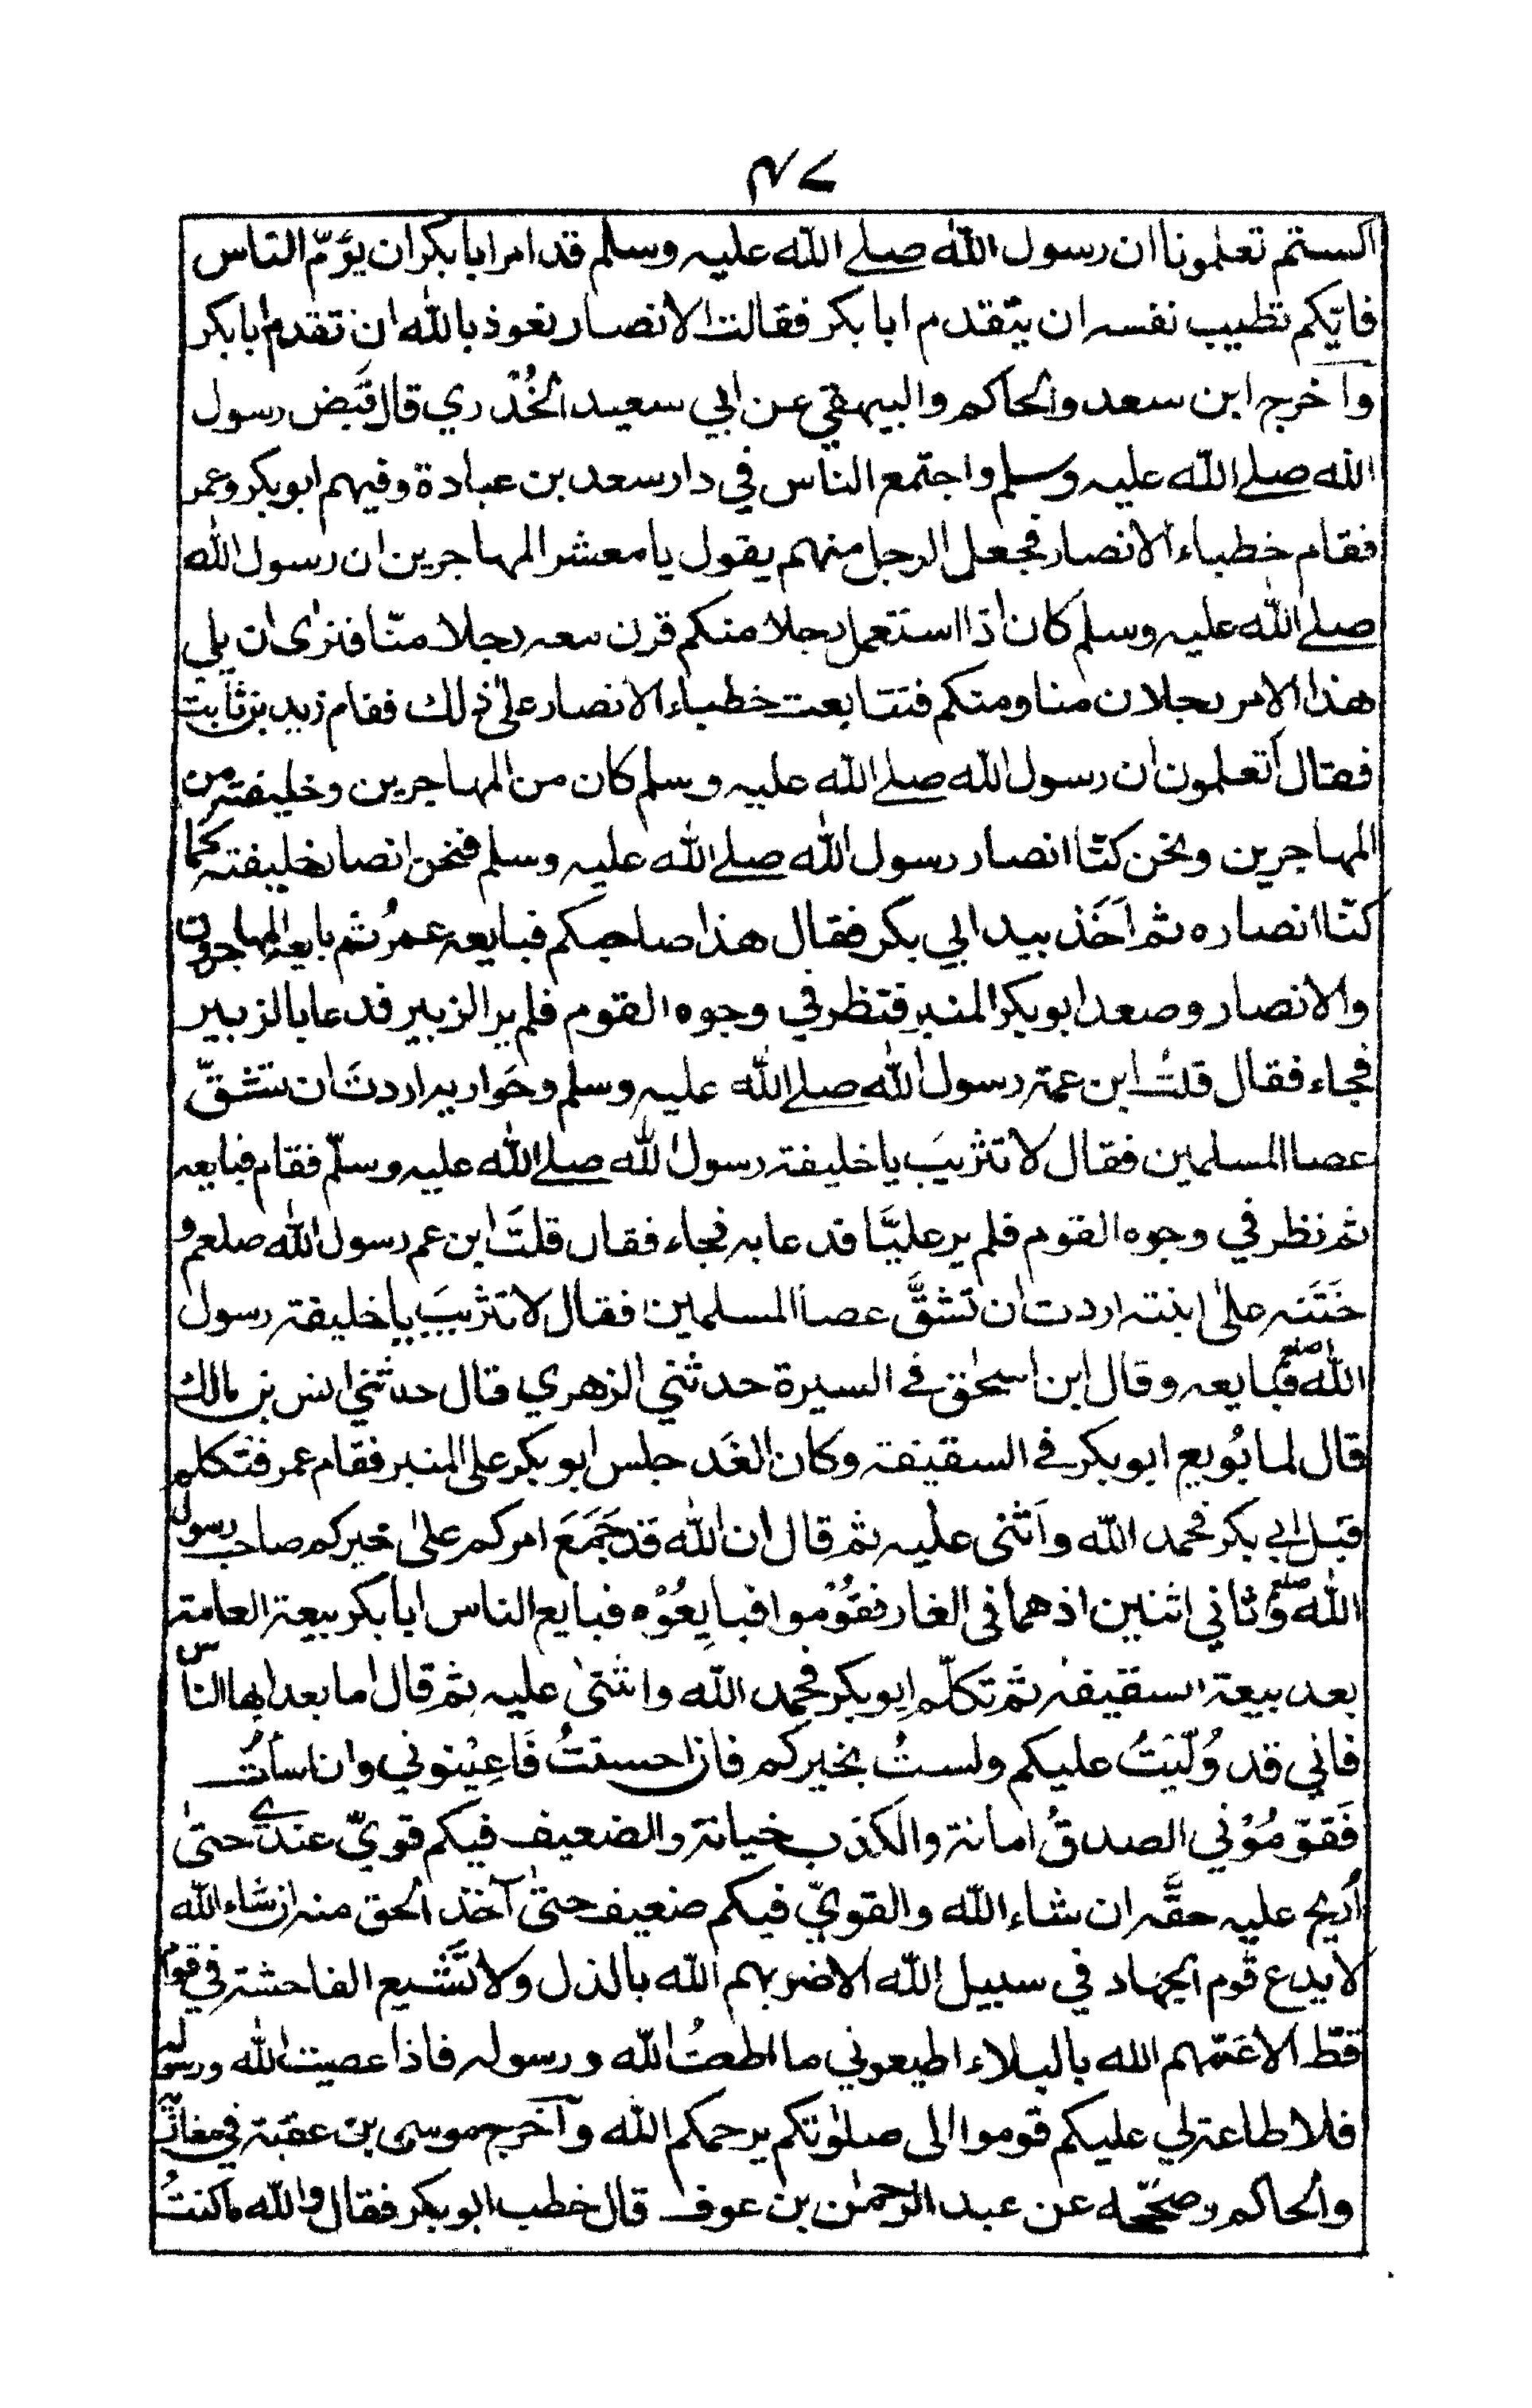 ٤٧
الستم تعلمونا ان رسول الله صلے الله عليه وسلم قد امر ابا بكر ان يؤمّ الناس
فايّكم تطيب نفسه ان يتقدم ابا بكر فقالت الانصار نعوذ بالله ان نتقدم ابا بكر
وآخرج ابن سعد والحاكم والبيهقي عن ابي سعيد الخُدْري قال قَبَض رسول
الله صلے الله عليه وسلم واجتمع الناس في دار سعد بن عبادة وفيهم ابو بكر وعمر
فقام خطباء الانصار فجعل الرجل منهم يقول يا معشر المهاجرين ان رسول الله
صلے الله عليه وسلم كان اذا استعمل رجلا منكم قرن معه رجلا منّا فنرى ان يلي
هذا الامر رجلان منا ومنكم فتتابعت خطباء الانصار على ذلك فقام زيد بن ثابت
فقال أتعلمون ان رسول الله صلے الله عليه وسلم كان من المهاجرين وخليفته من
المهاجرين ونحن كنّا انصار رسول الله صلے الله عليه وسلم فنحن انصار خليفته كما
كنّا انصاره ثم اَخَذ بيد ابي بكر فقال هذا صاحبكم فبايعه عمرُ ثم بايعه المهاجرون
والانصار وصعد ابو بكر المنبر فنظر في وجوه القوم فلم ير الزبير فدعا بالزبير
فجاء فقال قلتُ ابن عمة رسول الله صلے الله عليه وسلم وحَواريه اردتَ ان تشقّ
عصا المسلمين فقال لا تثريبَ يا خليفة رسول الله صلے الله عليه وسلّم فقام فبايعه
ثم نظر في وجوه القوم فلم ير عليّا فدعا به فجاء فقال قلتَ ابن عم رسول الله صلعم و
خَتَنه على ابنته اردت ان تشقَّ عصا المسلمين فقال لا تثريبَ يا خليفة رسول
الله صلعم فبايعه وقال ابن اسحٰق فے السيرة حدثني الزهري قال حدثني انس بن مالك
قال لما بُويع ابو بكر فے السقيفة وكان الغَد جلس ابو بكر على المنبر فقام عمر فتكلم
قبل ابي بكر فحمد الله واَثنى عليه ثم قال ان الله قد جَمَعَ امركم على خيركم صاحب رسول
الله صلعم وثاني اثنين اذ هما في الغار فقُوْموا فبايِعُوْه فبايع الناس ابا بكر بيعة العامة
بعد بيعة السقيفة ثم تكلّم ابو بكر فحمد الله واثنىٰ عليه ثم قال اما بعد ايها الناس
فاني قد وُلّيْتُ عليكم ولستُ بخيركم فان احسنتُ فَاعِيْنوني وان اسأتُ
فَقوّمُوْني الصدقُ امانة والكذب خيانة والضعيف فيكم قويّ عندے حتىٰ
أُريح عليه حقَّه ان شاء الله والقويّ فيكم ضعيف حتىٰ آخذ الحق منه ان شاء الله
لا يدع قوم الجهاد في سبيل الله الا ضربهم الله بالذل ولا تَشيع الفاحشة في قوم
قطّ الا عَمّهم الله بالبلاء اطيعوني ما اطعتُ الله ورسوله فاذا عصيت الله ورسوله
فلا طاعة لي عليكم قوموا الى صلوٰتكم يرحمكم الله وآخرج موسى بن عقبة في مغازيه
والحاكم وصحّحه عن عبد الرحمٰن بن عوف قال خطب ابو بكر فقال والله ما كنتُ